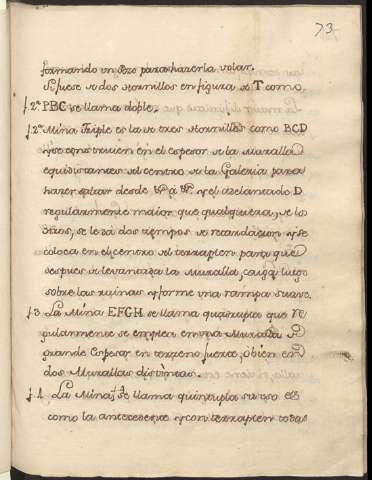 73
formando un Pozo para hazerla volar.
Si fuese de dos ornillos en figura de T como
f.2ª PBC se llama doble.
f.2ª Mina Triple es la de tres ornillos como BCD
y se construien en el espesor de la Muralla
equidistantes del centro de la Galeria para
hazer saltar desde
y el adelantado D
regularmente maior que qualquiera, de los
otros, se le da dos tiempos de retardacion y se
coloca en el centro del terraplen para que
despues de levantada la Muralla, caiga luego
sobre las ruinas y forme una rampa suave.
f.3 La Mina EFGH se llama quadrupla que re
gularmente se emplea en una Muralla de
grande espesor en terreno fuerte, ó bien en
dos Murallas distintas.
f.4 La Mina se llama quintupla su uso es
como la antecedente y con terraplen todas